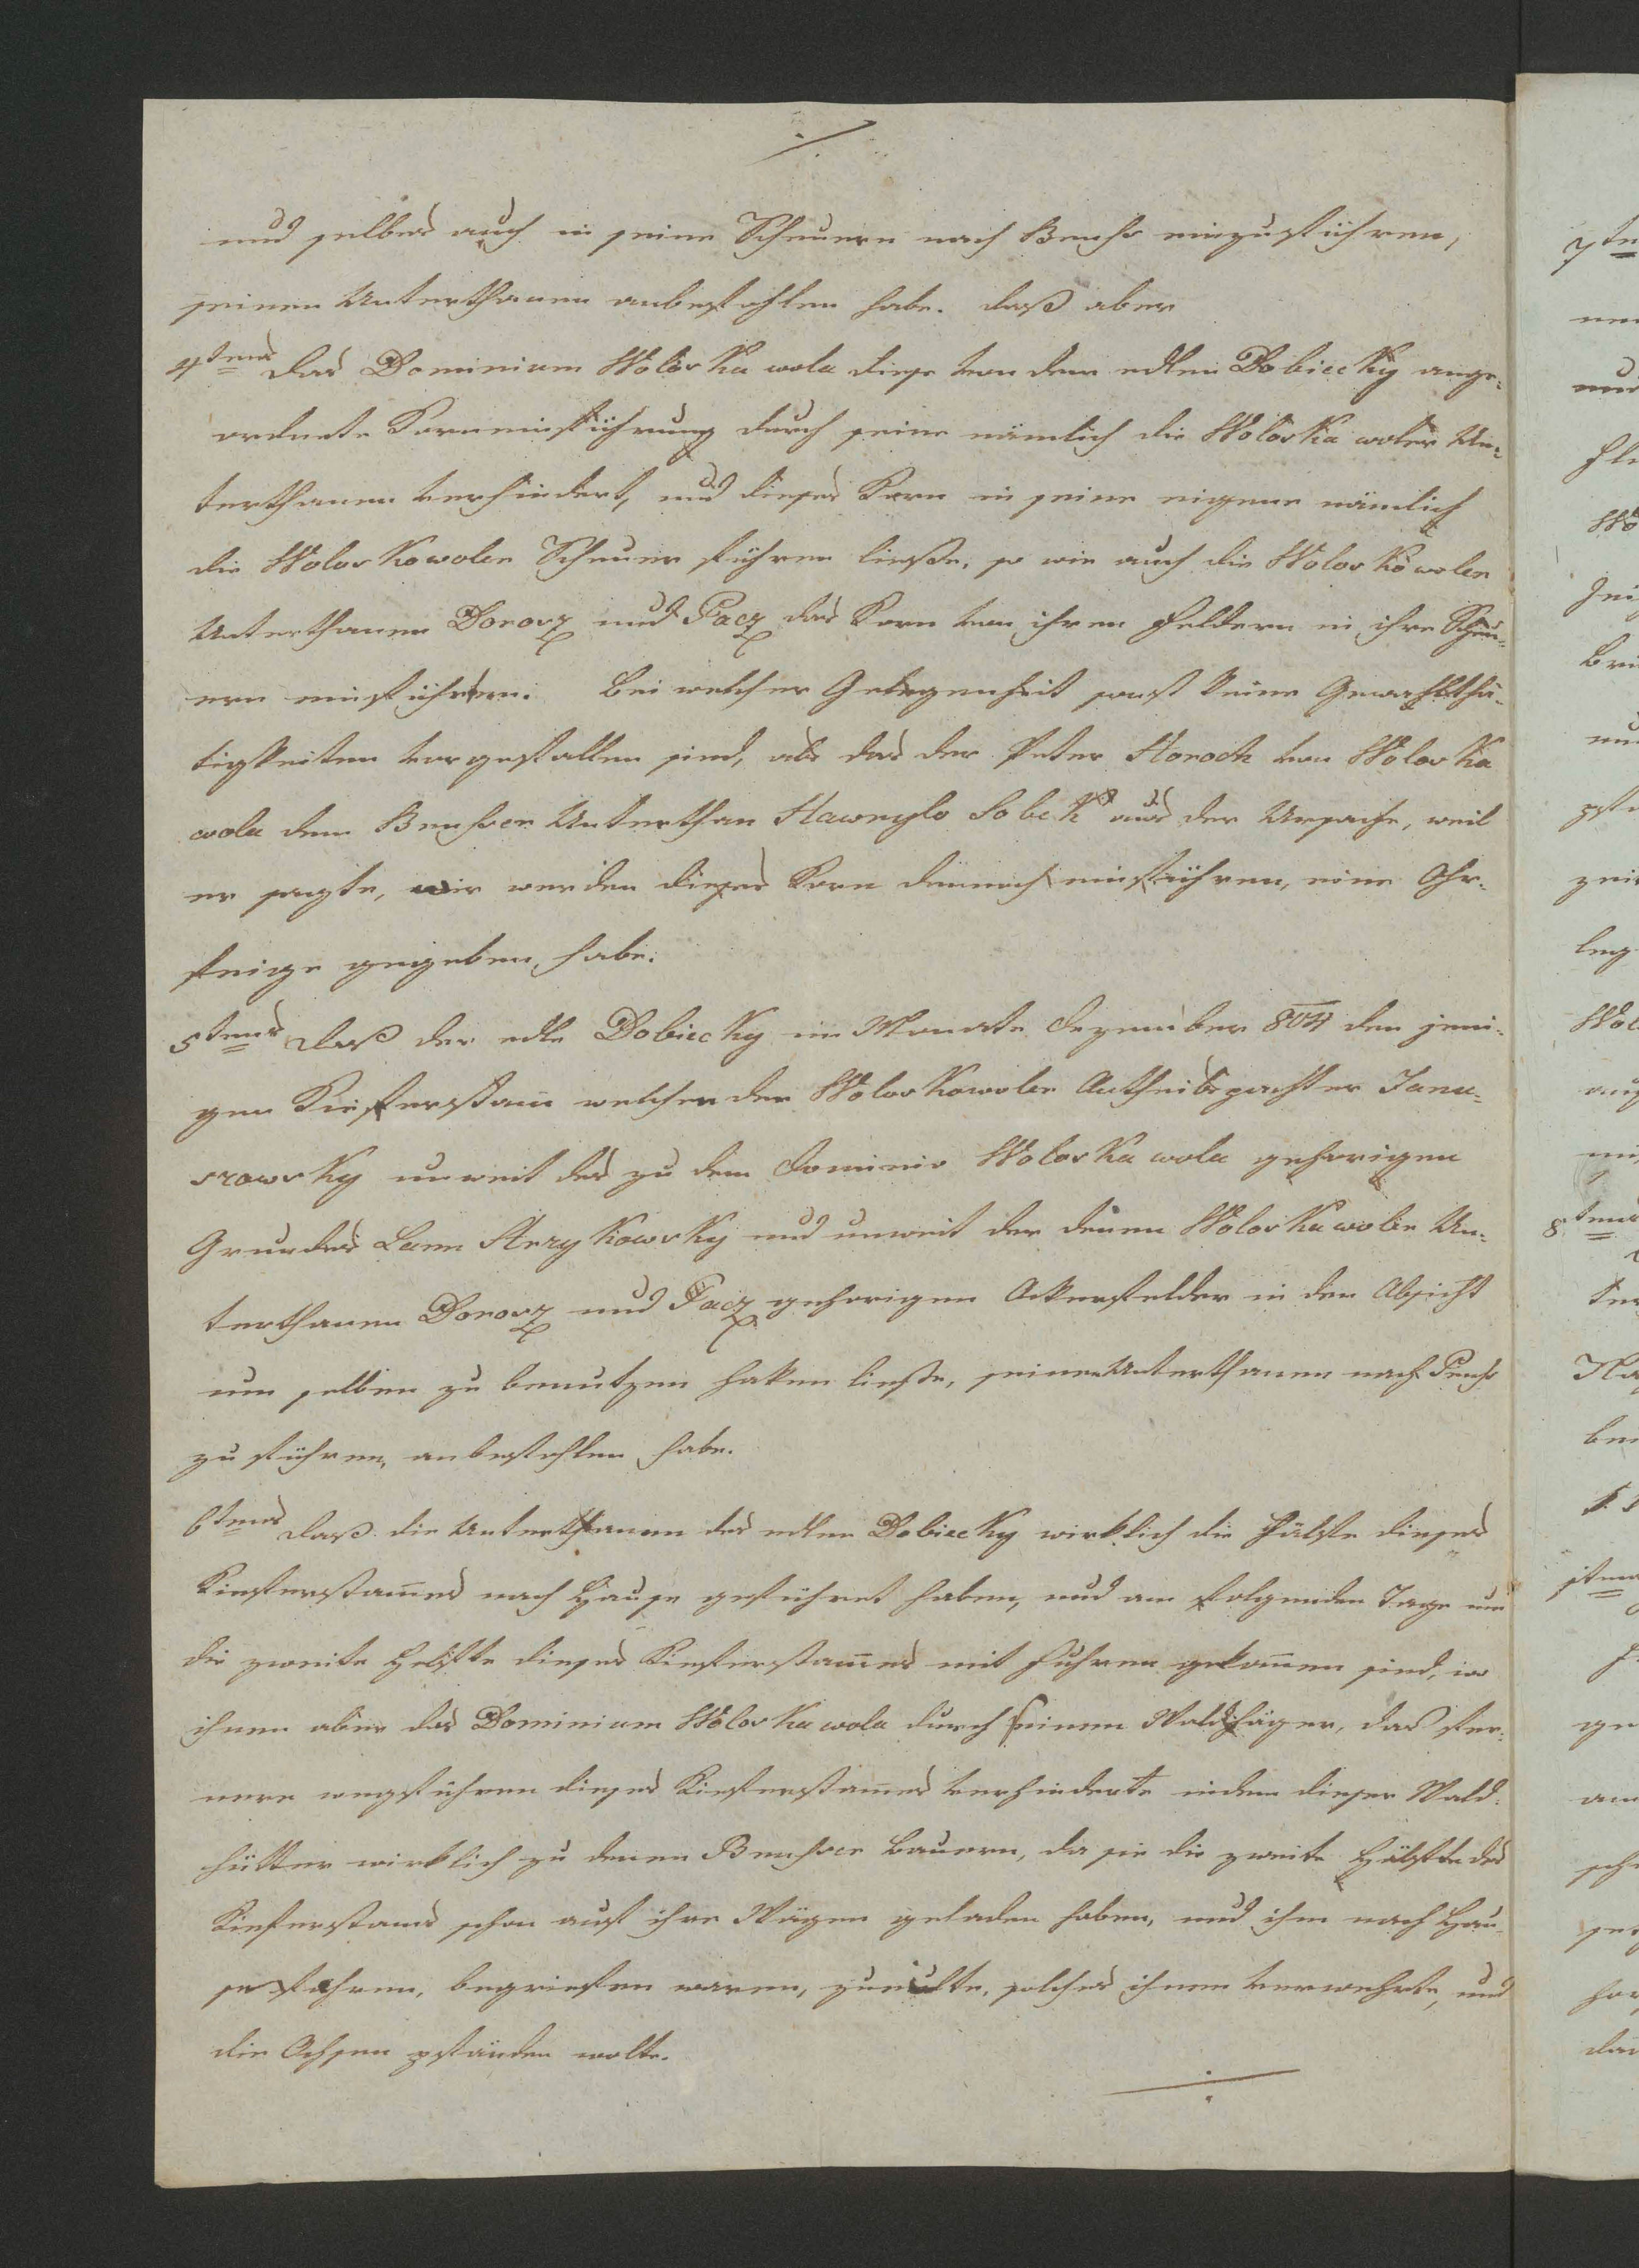 ./.
und selbes auch in seine Scheuern nach Bruss einzuführen,
seinen Unterthanen anbefohlen habe. daß aber
4tens das Dominium Woloska wola diese von dem edlen Dobiecky ange-
ordnete Korneinführung durch seine nämlich die Woloska woler Un-
terthanen verhindert, und dieses Korn in seine eigene nämlich
die Woloskowoler Scheuer führen ließe, so wie auch die Woloskowoler
Unterthanen Dorosz und Pacz das Korn von ihren Feldern in ihre Scheu-
ern einführten. Bei welcher Gelegenheit sonst keine Gewaltthä-
tigkeiten vorgefallen sind, als das der Peter Horoch von Woloska
wola dem Brusser Unterthan Hawrylo Sobek aus der Ursache, weil
er sagte, wir werden dieses Korn dennoch einführen, eine Ohr-
feige gegeben habe.
5tens daß der edle Dobiecky im Monate Dezember 804 den jeni-
gen Kieferstam̄ welchen der Woloskowoler Antheilspachter Janu-
szowsky unweit des zu dem Dominio Woloska wola gehorigen
Grundes Lann Stezykowsky und unweit der denen Woloskawoler Un-
terthanen Dorosz und Pacz gehorigen Ackerfelder in der Absicht
um selben zu benutzen haken ließe, seinen Unterthanen nach Bruss
zu führen, anbefohlen habe.
6tens daß die Unterthanen des edlen Dobiecky wirklich die Hälfte dieses
Kieferstam̄es nach Hause geführet haben, und am folgenden Tage um
die zweite Helfte dieses Kieferstam̄es mit Fuhren gekom̄en sind, wo
ihnen aber das Dominium Woloska wola durch seinen Waldhäger, das fer-
nere wegführen dieses Kieferstam̄es verhinderte indem dieser Wald-
hütter wirklich zu denen Brusser Bauern, da sie die zweite Hälfte des
Kieferstams schon auf ihre Wägen geladen haben, und ihm nach Hau-
se führen, begriefen waren, zueilte, solches ihnen verwehrte, und
die Ochsen pfänden wolte.
./.
7te
8tens